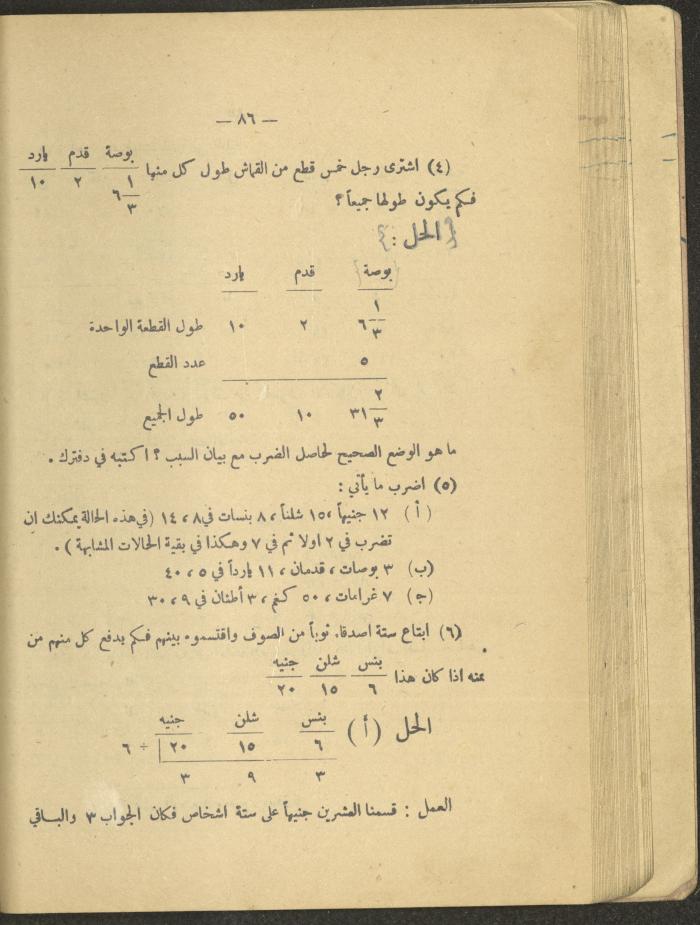 — ٨٦ —
(٤) اشترى رجل خمس قطع من القماش طول كل منها
بوصة قدم يارد
٦ ١/٣ ٢ ١٠
فكم يكون طولها جميعاً؟
{الحل :}
بوصة قدم يارد
٦ ١/٣ ٢ ١٠ طول القطعة الواحدة
٥ عدد القطع
٣١ ٢/٣ ١٠ ٥٠ طول الجميع
ما هو الوضع الصحيح لحاصل الضرب مع بيان السبب ؟ اكتبه في دفترك .
(٥) اضرب ما يأتي :
(أ) ١٢ جنيهاً ، ١٥ شلناً ، ٨ بنسات في ٨ ، ١٤ (في هذه الحالة يمكنك ان
تضرب في ٢ اولا ثم في ٧ وهكذا في بقية الحالات المشابهة ) .
(ب) ٣ بوصات ، قدمان ، ١١ يارداً في ٥ ، ٤٠
(ج) ٧ غرامات ، ٥٠ كغم ، ٣ أطنان في ٩ ، ٣٠
(٦) ابتاع ستة اصدقاء ثوباً من الصوف واقتسموه بينهم فكم يدفع كل منهم من
ثمنه اذا كان هذا
بنس شلن جنيه
٦ ١٥ ٢٠
الحل (أ)
بنس شلن جنيه
٦ ١٥ ٢٠ ÷ ٦
٣ ٩ ٣
العمل : قسمنا العشرين جنيهاً على ستة اشخاص فكان الجواب ٣ والباقي